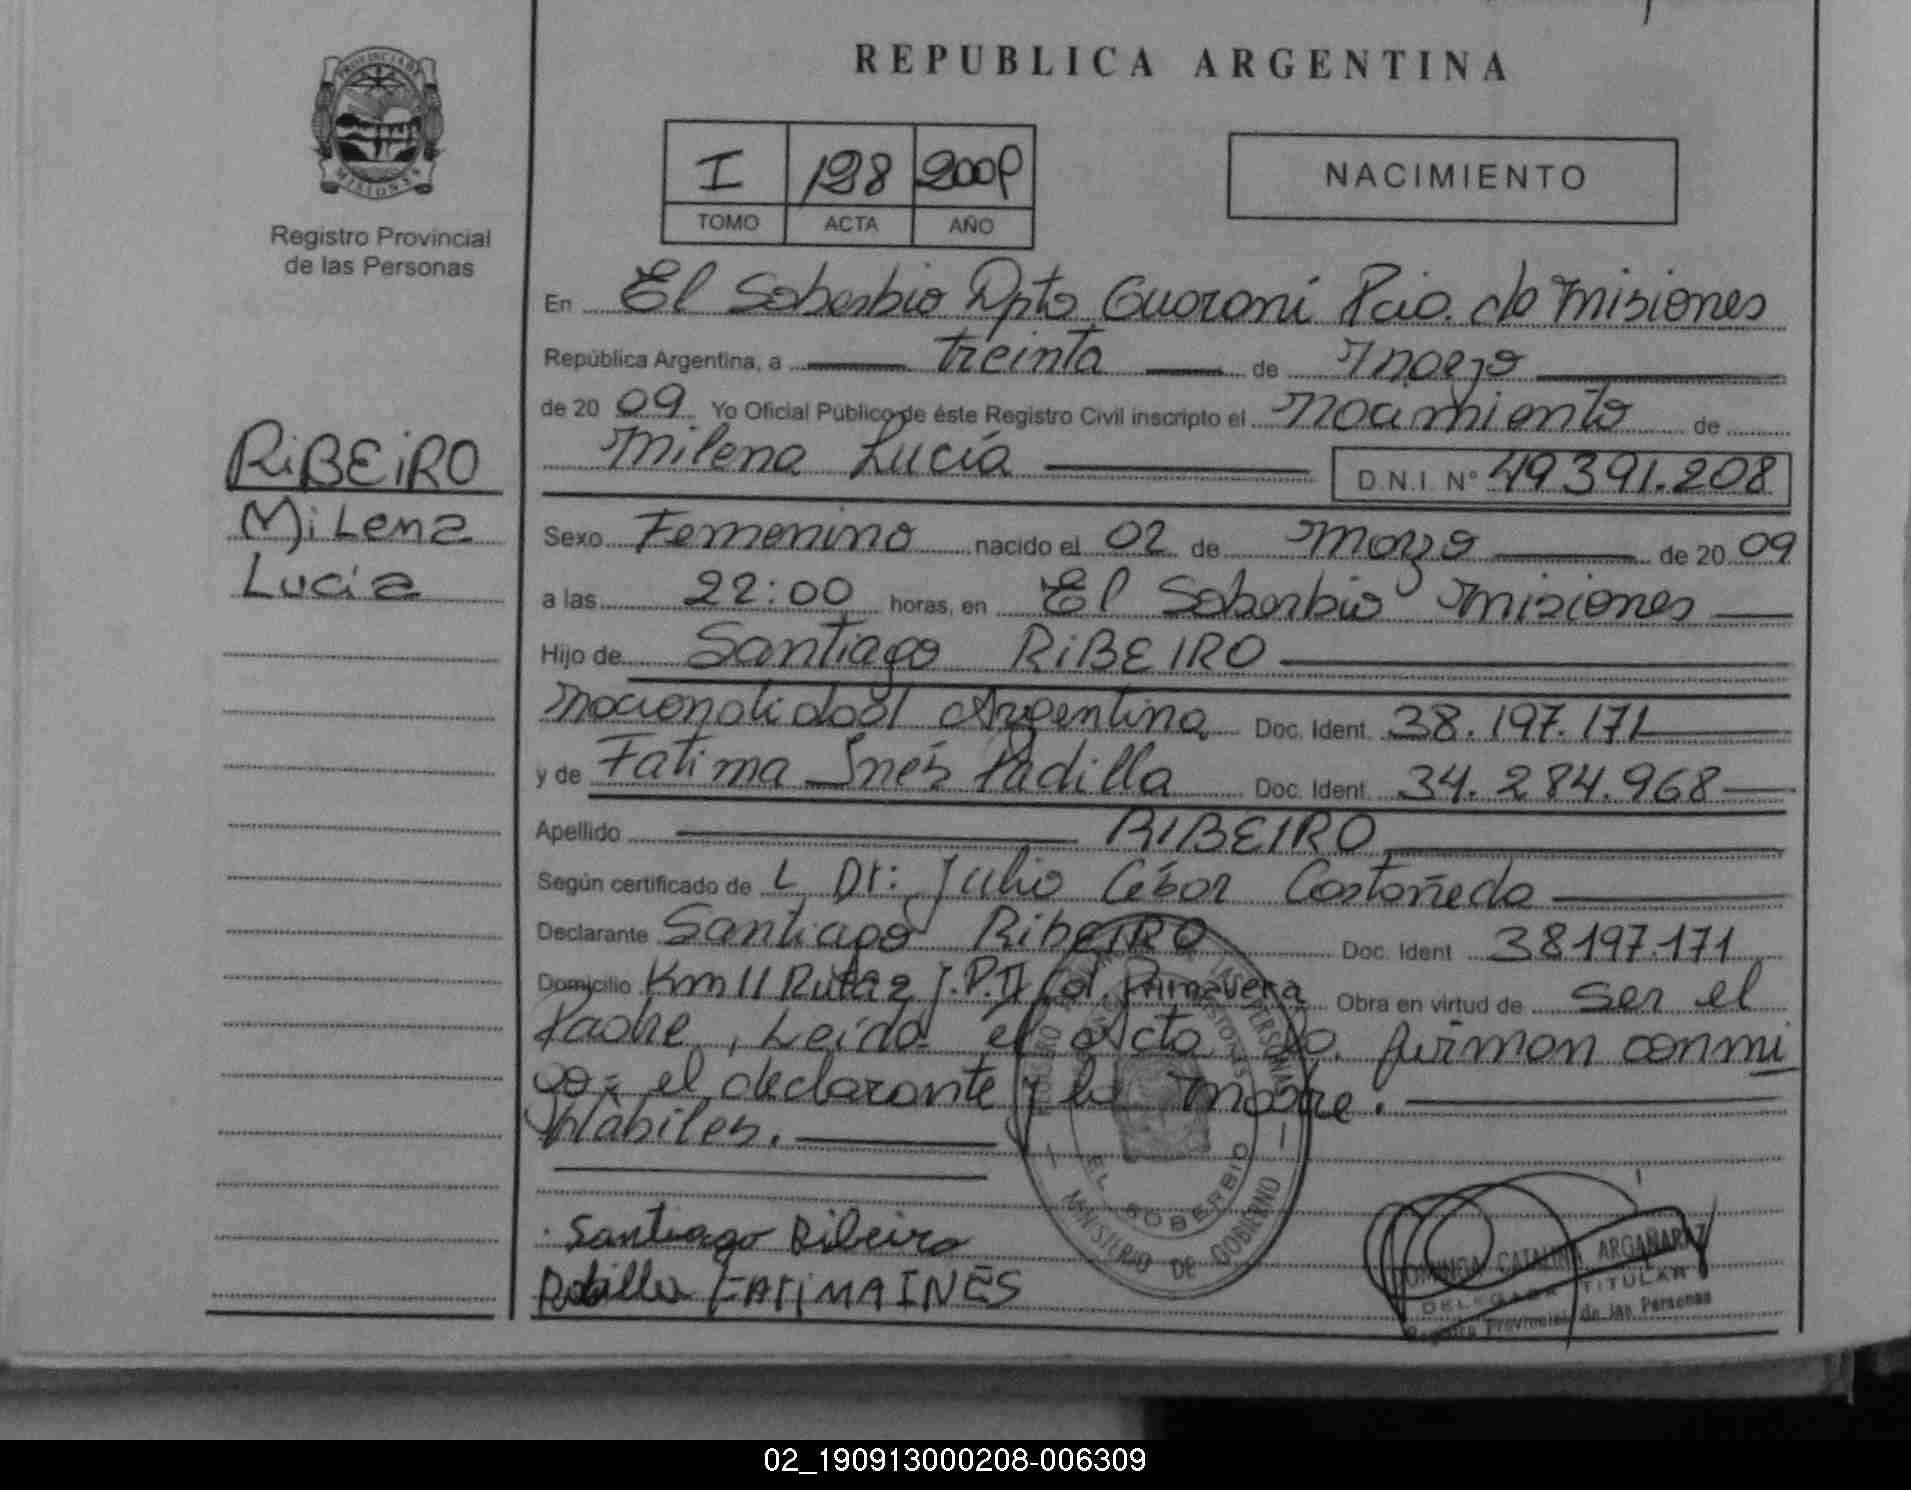 REPUBLICA ARGENTINA
PROVINCIA DE MISIONES
Registro Provincial
de las Personas
I 198 2009
TOMO ACTA AÑO
NACIMIENTO
En El Soberbio Dpto Guaraní Pcia. de Misiones
República Argentina, a treinta de marzo
de 20 09 Yo Oficial Público de éste Registro Civil inscripto el nacimiento de
Milena Lucía D.N.I. N° 49.391.208
RiBEiRO
MiLena
Lucía
Sexo Femenino nacido el 02 de marzo de 20 09
a las 22:00 horas, en El Soberbio Misiones
Hijo de Santiago RiBEIRO
nacionalidad Argentina Doc. Ident. 38.197.171
y de Fatima Inés Padilla Doc. Ident. 34.284.968
Apellido RIBEIRO
Según certificado de L Dr: Julio César Castañeda
Declarante Santiago RibeiRO Doc. Ident 38197.171
Domicilio Km 11 Ruta 2 Col. Primavera Obra en virtud de ser el
Padre, Leída el Acta la firman conmi
go= el declarante y la madre.
Habiles.
Santiago Ribeiro
Padilla FATiMA INÉS
EL SOBERBIO
MINISTERIO DE GOBIERNO
DOMINGA CATALINA ARGAÑARAZ
DELEGADA TITULAR
Registro Provincial de las Personas
02_190913000208-006309